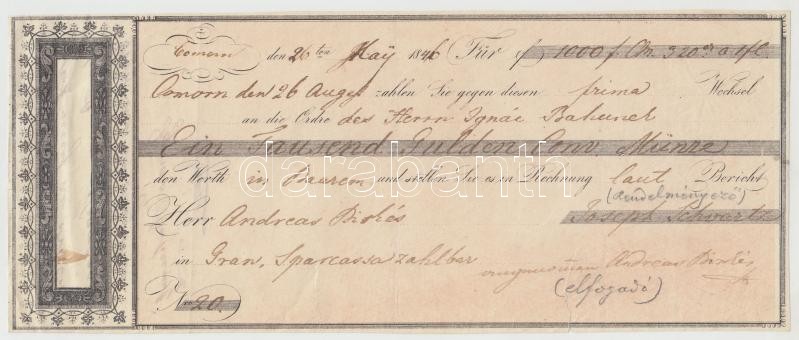 Comorn den 26ten Maÿ 1846 Für f 1000 f. CM. 3 20er a f C
Comorn den 26 Augst zahlen Sie gegen diesen prima Wechsel
an die Ordre des Herrn Ignác Bahunek
Ein Tausend Gulden Conv. Münze
den Werth in Baarem und stellen Sie es in Rechnung laut Bericht
(rendelményező)
Herr Andreas Joseph Schwartz
in Gran, Sparcassa zahlber Andreas
(elfogadó)
No 20.
darabanth